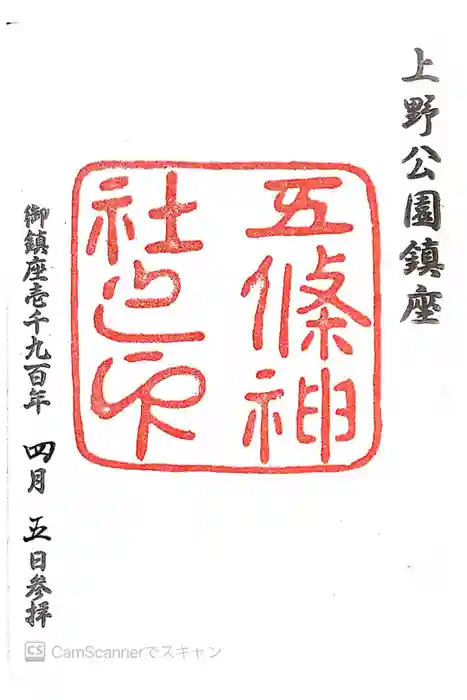 上野公園鎮座
五條神
社之印
御鎮座壱千九百年 四月 五日参拝
CS CamScannerでスキャン